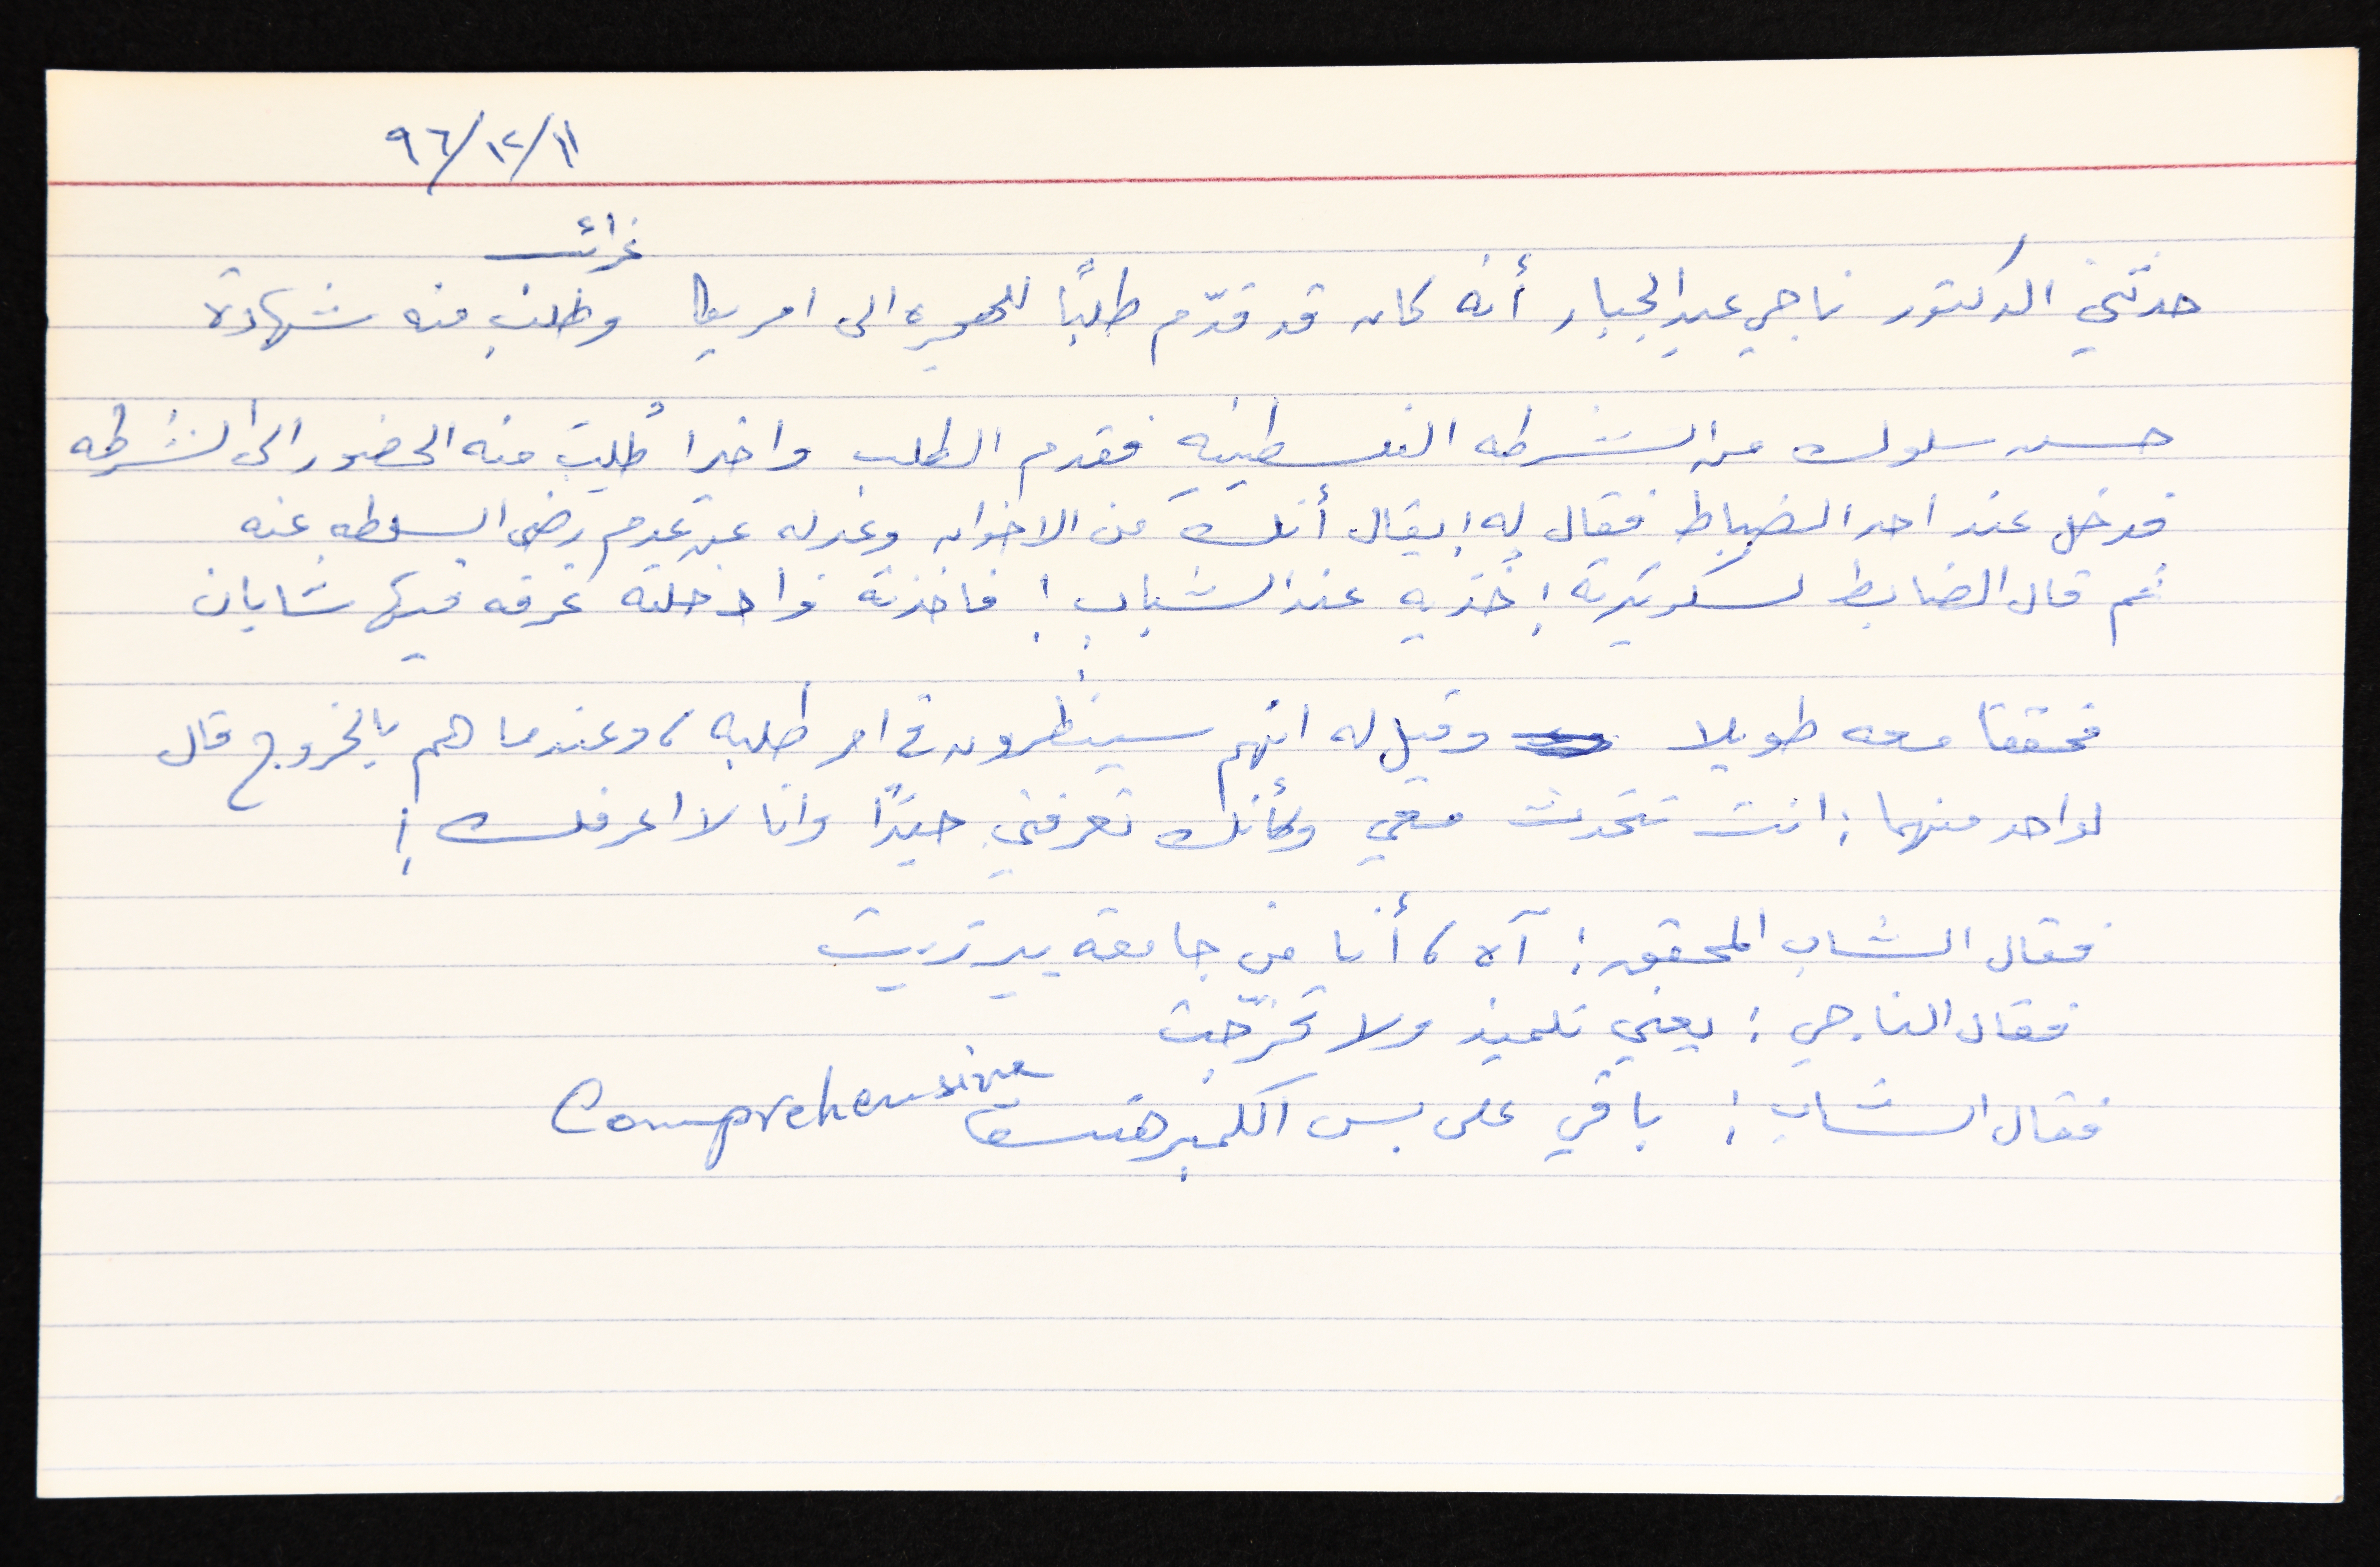 ٩٦/١٢/١١
غرائب
حدثني الدكتور ناجي عبد الجبار أنه كان قد قدّم طلبًا للهجره الى امريكا وطلب منه شهادة
حسن سلوك من الشرطه الفلسطينيه فقدم الطلب واخيرا طُلِبَ منه الحضور الى الشرطه
فدخل عند احد الضباط فقال له: يقال أنك من الاخوان وغدله عن عدم رضى السلطه عنه
ثم قال الضابط لسكرتيرته: خُذيه عند الشباب! فاخذته وادخلته غرفه فيها شابان
فحققا معه طويلا وقيل له انهم سينظرون في امر طلبه، وعندما هم بالخروج قال
لواحد منهما: انت تتحدث معي وكأنك تعرفني جيّدًا وانا لا اعرفك!
فقال الشاب المحقق: آه، أنا من جامعة بير زيت
فقال الناجي: يعني تلميذ ولا تخرّجت
فقال الشاب: باقي على بس الكمبرهنسف Comprehensive